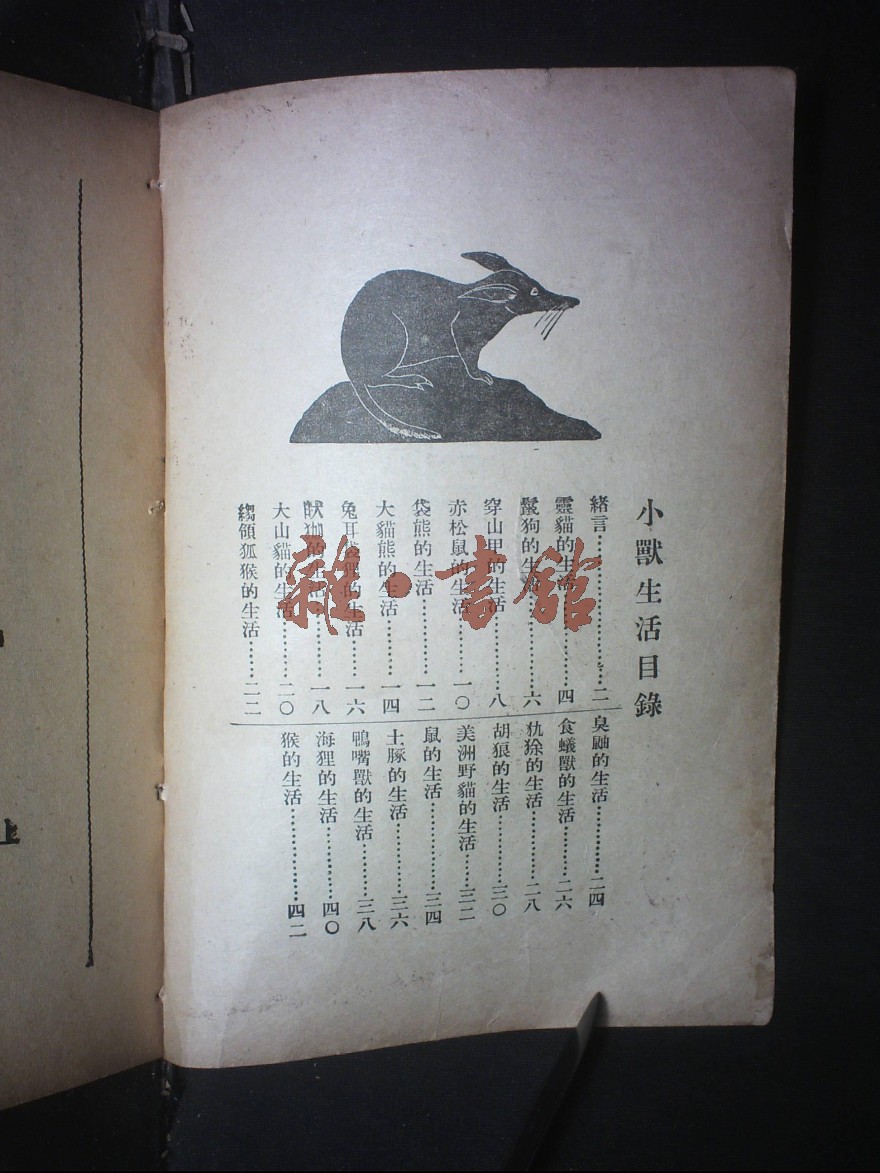 小獸生活目錄
緒言……………………二
靈貓的生活……………四
鬣狗的生活……………六
穿山甲的生活…………八
赤松鼠的生活………一〇
袋熊的生活…………一二
大貓熊的生活………一四
兔耳袋狸的生活……一六
的生活……一八
大山貓的生活………二〇
縐領狐猴的生活……二二
臭鼬的生活…………二四
食蟻獸的生活………二六
犰狳的生活…………二八
胡狼的生活…………三〇
美洲野貓的生活……三二
鼠的生活……………三四
土豚的生活…………三六
鴨嘴獸的生活………三八
海狸的生活…………四〇
猴的生活……………四二
雜·書館
上